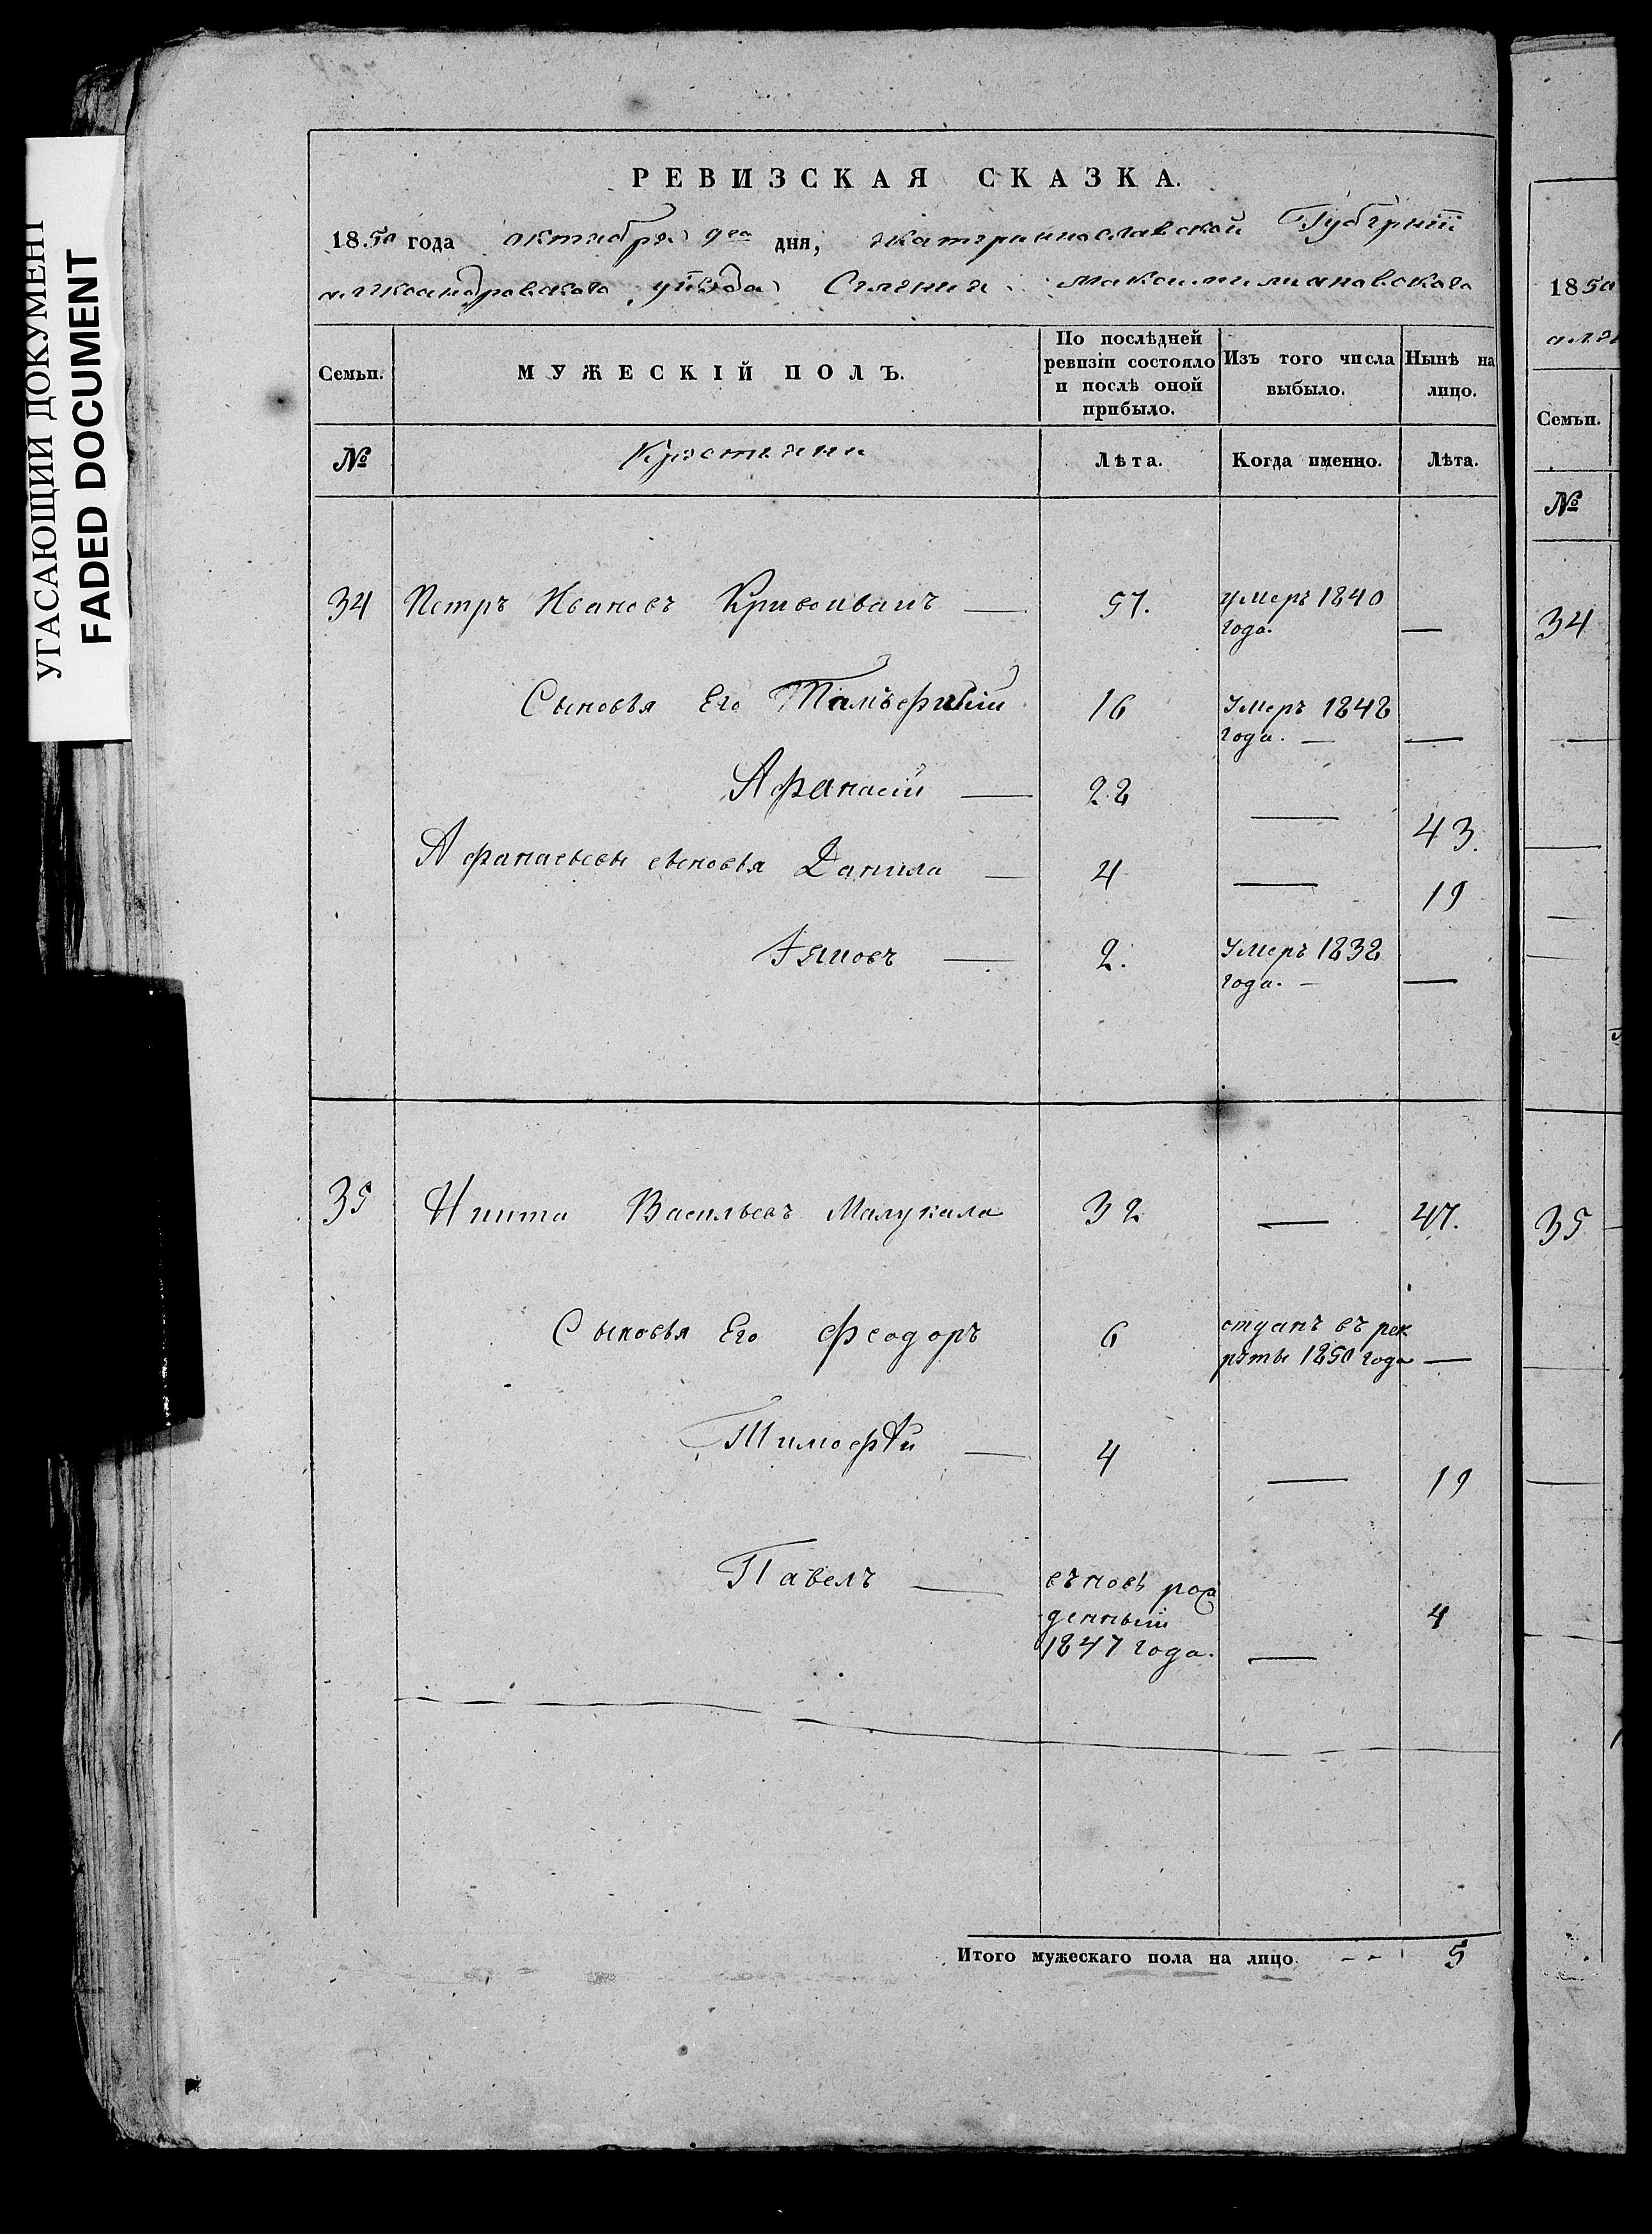 УГАСАЮЩИЙ ДОКУМЕНТ
FADED DOCUMENT
РЕВИЗСКАЯ СКАЗКА.
1850 года октября 9го дня, Екатеринославской Губерніи
александровского уѣзда Селения Максимилиановского
Семьи.
МУЖЕСКІЙ ПОЛЪ.
По послѣдней ревизіи состояло и послѣ оной прибыло.
Изъ того числа выбыло.
Нынѣ на лицо.
№
Крестяни
Лѣта.
Когда именно.
Лѣта.
34 Петръ Ивановъ Кривоиванъ — 57. умеръ 1840 года. —
Сыновья Его 16 Умеръ 1848 года. — —
Афанасій — 28 — 43.
Афанасьевы сыновья Данила — 4 — 19
Яковъ — 2. Умеръ 1838 года. — —
35 Никита Васильевъ Малукала 32 — 47.
Сыновья Его Феодоръ 6 отданъ въ рек
рѣты 1850 года —
Тимофѣй — 4 — 19
Павелъ — въновь рож
денный
1847 года. — 4
Итого мужескаго пола на лицо - - 5
1850
але
Семьи.
№
34
35